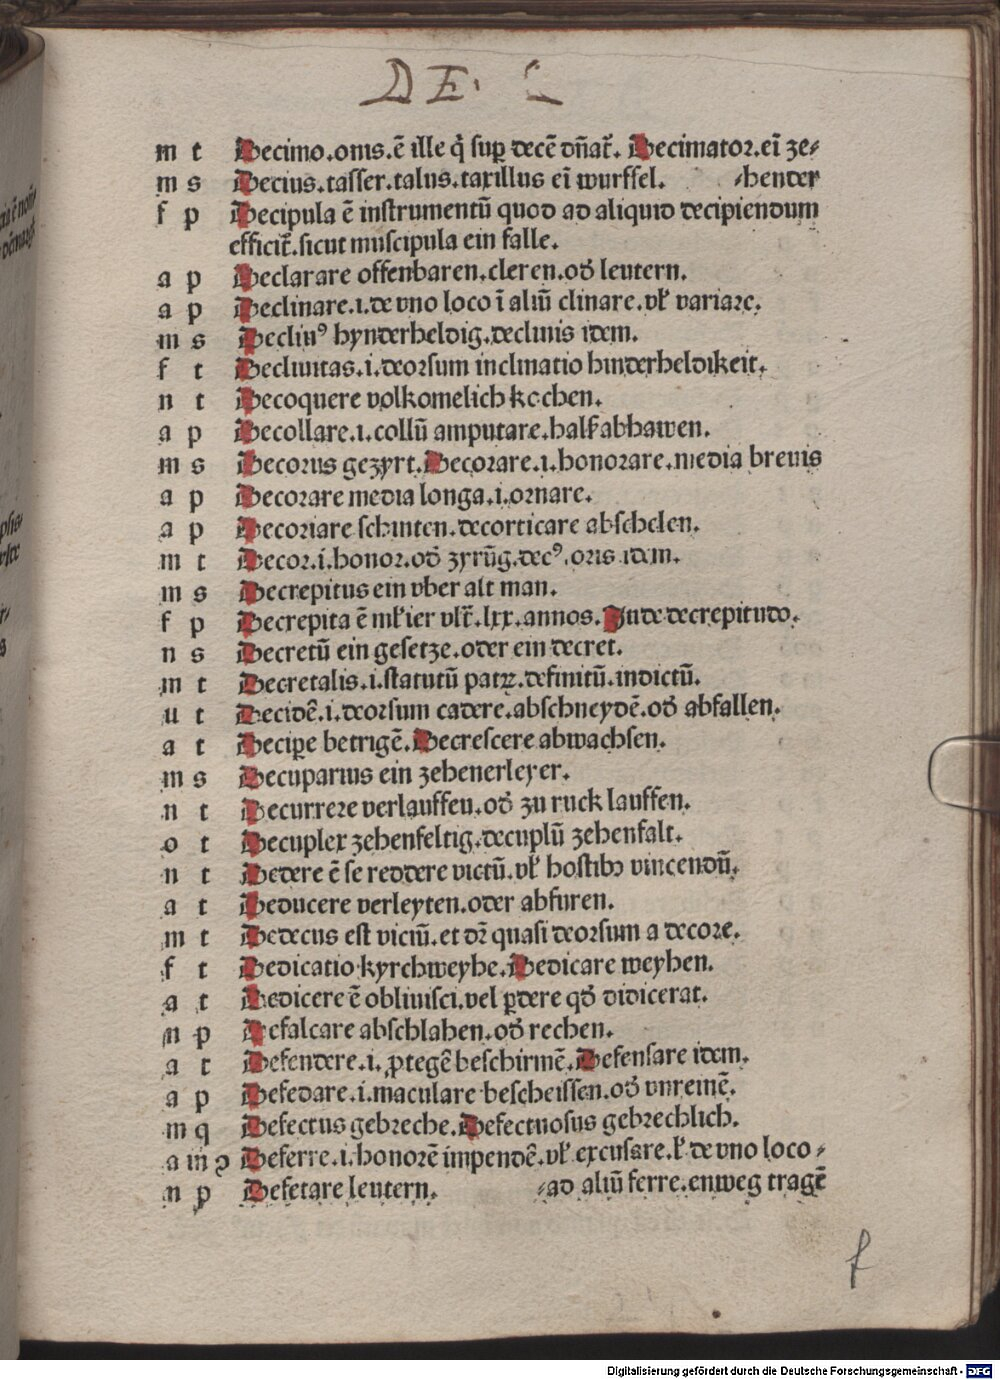 DE.
m t Decimo.onis.ē ille q̇ sup̱ decē dn̄at᷑. Decimator.ei ze⸗
m s Decius.tasser.talus.taxillus ei wurffel. ⸗hender
f p Decipula ē instrumentū quod ad aliquid decipiendum
efficit᷑.sicut muscipula ein falle.
a p Declarare offenbaren.cleren.od̕ leutern.
a p Declinare.i.de vno loco ī aliū clinare.vl̕ variare.
m s Decliuꝰ hynderheldig.decliuis idem.
f t Decliuitas.i.deorsum inclinatio hinderheldikeit.
n t Decoquere volkomelich kochen.
a p Decollare.i.collū amputare.halß abhawen.
m s Decorus gezyrt.Decorare.i.honorare.media breuis
a p Decorare media longa.i.ornare.
a p Decoriare schinten.decorticare abschelen.
m t Decor.i.honor.od̕ zyrūg.decꝰ.oris idem.
m s Decrepitus ein vber alt man.
f p Decrepita ē ml̕ier vlt᷑.lxx.annos.Inde decrepitudo.
n s Decretū ein gesetze.oder ein decret.
m t Decretalis.i.statutū patꝝ.definitū.indictū.
u t Decidē.i.deorsum cadere.abschneydē.od̕ abfallen.
a t Decipe̱ betrigē.Decrescere abwachsen.
m s Decuparius ein zehenerleyer.
n t Decurrere verlauffen.od̕ zu ruck lauffen.
o t Decuplex zehenfeltig.decuplū zehenfalt.
n t Dedere ē se reddere victū.vl̕ hostibꝫ vincendū.
a t Deducere verleyten.oder abfuren.
m t Dedecus est viciū.et dr̄ quasi deorsum a decore.
f t Dedicatio kyrchweyhe.Dedicare weyhen.
a t Dedicere ē obliuisci.vel ꝑdere qd̕ didicerat.
n p Defalcare abschlahen.od̕ rechen.
a t Defendere.i.ꝓtegē beschirmē.Defensare idem.
a p Defedare.i.maculare bescheissen.od̕ vnreinē.
m q Defectus gebreche.Defectuosus gebrechlich.
a m̄ ꝯ Deferre.i.honorē impendē.vl̕ excusare.l̕ de vno loco⸗
n p Defetare leutern. ⸗ad aliū ferre.enweg tragē
f
Digitalisierung gefördert durch die Deutsche Forschungsgemeinschaft - DFG